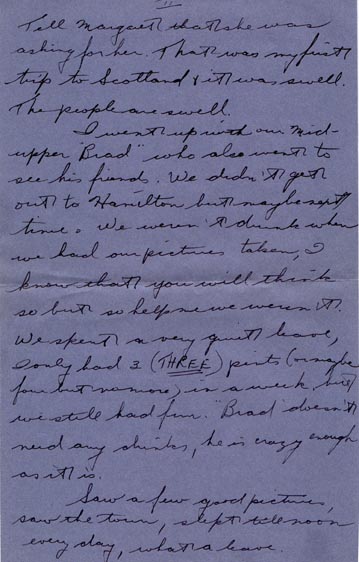 11
Tell Margaret that she was
asking for her. That was my first
trip to Scotland & it was swell.
The people are swell.
I went up with our Mid-
upper "Brad" who also went to
see his friends. We didn't get
out to Hamilton but maybe next
time. We weren't drunk when
we had our pictures taken, I
know that you will think
so but so help me we weren't.
We spent a very quiet leave,
I only had 3 (THREE) pints (or maybe
four but no more) in a week, but
we still had fun. "Brad" doesn't
need any drinks, he is crazy enough
as it is.
Saw a few good pictures,
saw the town, slept till noon
every day, what a leave.